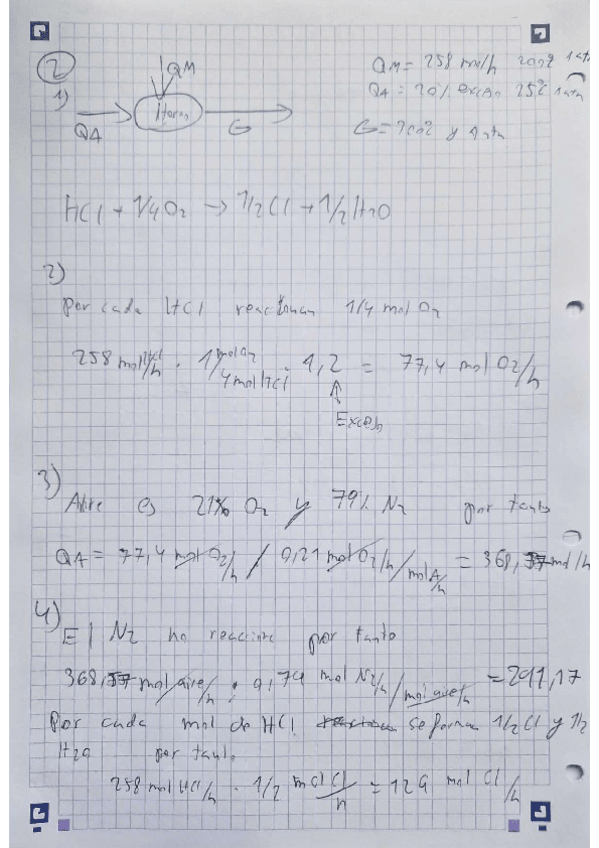 2
1)
QM
QM = 258 mol/h 200º 1 atm
QA = 20% exceso 25º 1 atm
Horno
QA
G
G = 200º y 1 atm
HCl + 1/4 O2 → 1/2 Cl + 1/2 H2O
2)
Por cada HCl reaccionan 1/4 mol O2
258 mol HCl/h · 1 mol O2/4 mol HCl · 1,2 = 77,4 mol O2/h
Exceso
3)
Aire es 21% O2 y 79% N2 por tanto
QA = 77,4 mol O2/h / 0,21 mol O2/h/mol A/h = 368,57 mol/h
4)
El N2 no reacciona por tanto
368,57 mol aire/h · 0,79 mol N2/h/mol aire/h = 291,17
Por cada mol de HCl se forman 1/2 Cl y 1/2
H2O por tanto
258 mol HCl/h · 1/2 mol Cl/h = 129 mol Cl/h